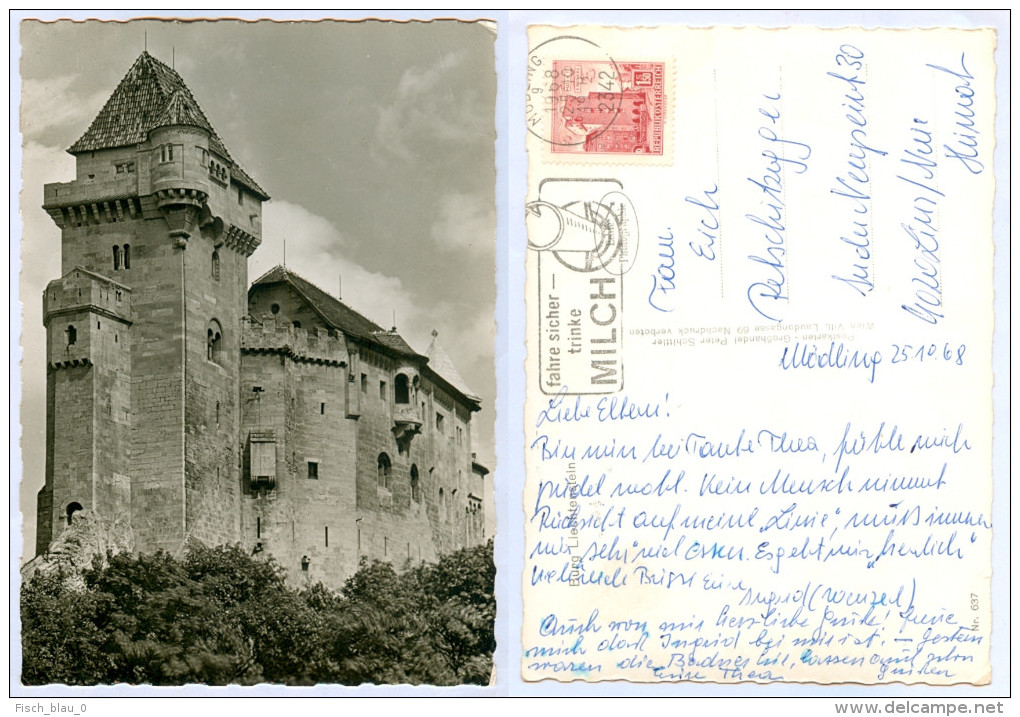 MÖDLING
1968
2342
1.50
REPUBLIK ÖSTERREICH
fahre sicher —
trinke
MILCH
Fam.
Erich
Petschitzegger
30
Heimat
Postkarten - Großhandel Peter Schittler
Wien VIII, Laudongasse 69 Nachdruck verboten
Burg Liechtenstein
Nr. 637
Mödling 25.10.68
Liebe Eltern!
Bin nun bei Tante Thea, fühle mich
pudelwohl. Kein Mensch nimmt
Rücksicht auf meine „Linie“, muß immer
nur sehr viel essen. Es geht mir „herrlich“
Bussi Eure
Ingrid (Wenzel)
Auch von mir herzliche Grüße! Freue
mich daß Ingrid bei mir ist. – Gestern
waren die lassen auch schön
Eure Thea grüßen
Fisch_blau_0
www.delcampe.net